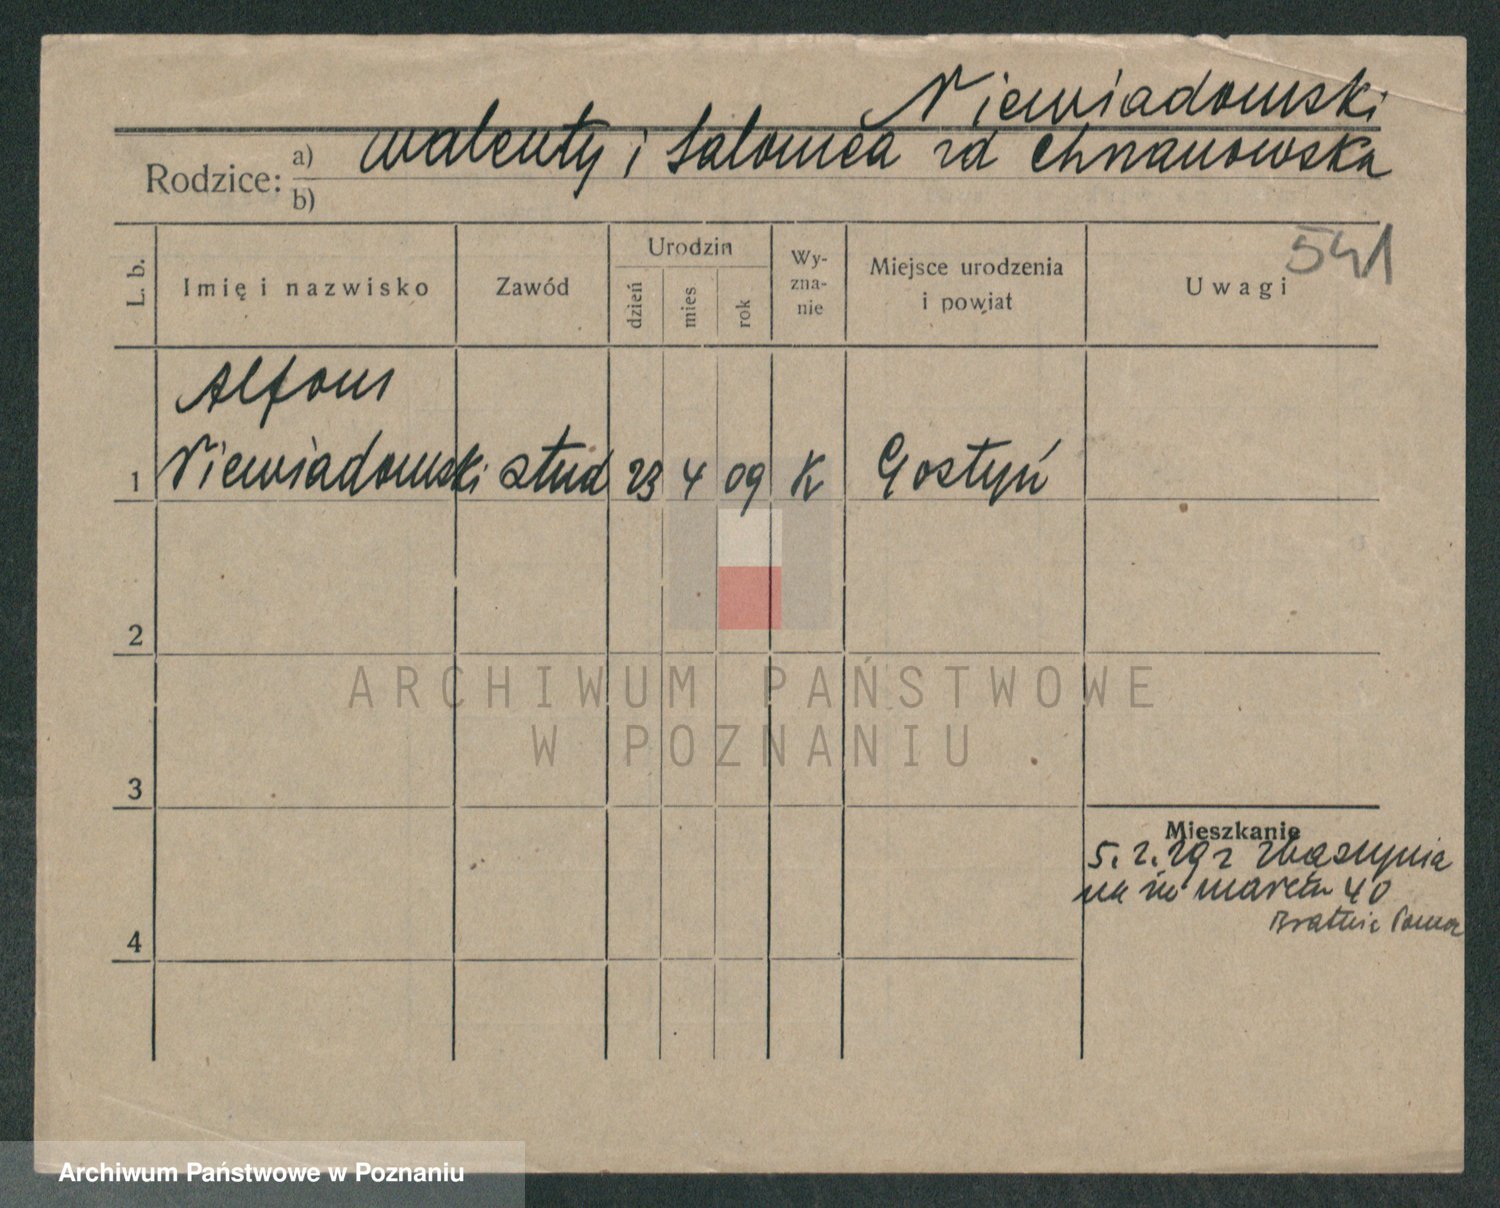 Niewiadomski
Rodzice: a) Walenty i Salomea zd Chrzanowska
b)
541
L. b.
Imię i nazwisko
Zawód
Urodzin
dzień
mies
rok
Wy-
zna-
nie
Miejsce urodzenia
i powiat
Uwagi
Alfons
1 Niewiadomski stud 23 4 09 K Gostyń
2
ARCHIWUM PAŃSTWOWE
W POZNANIU
3
Mieszkanie
5. 2. 29 z Zbąszynia
na 40
Bratnia Pomoc
4
Archiwum Państwowe w Poznaniu